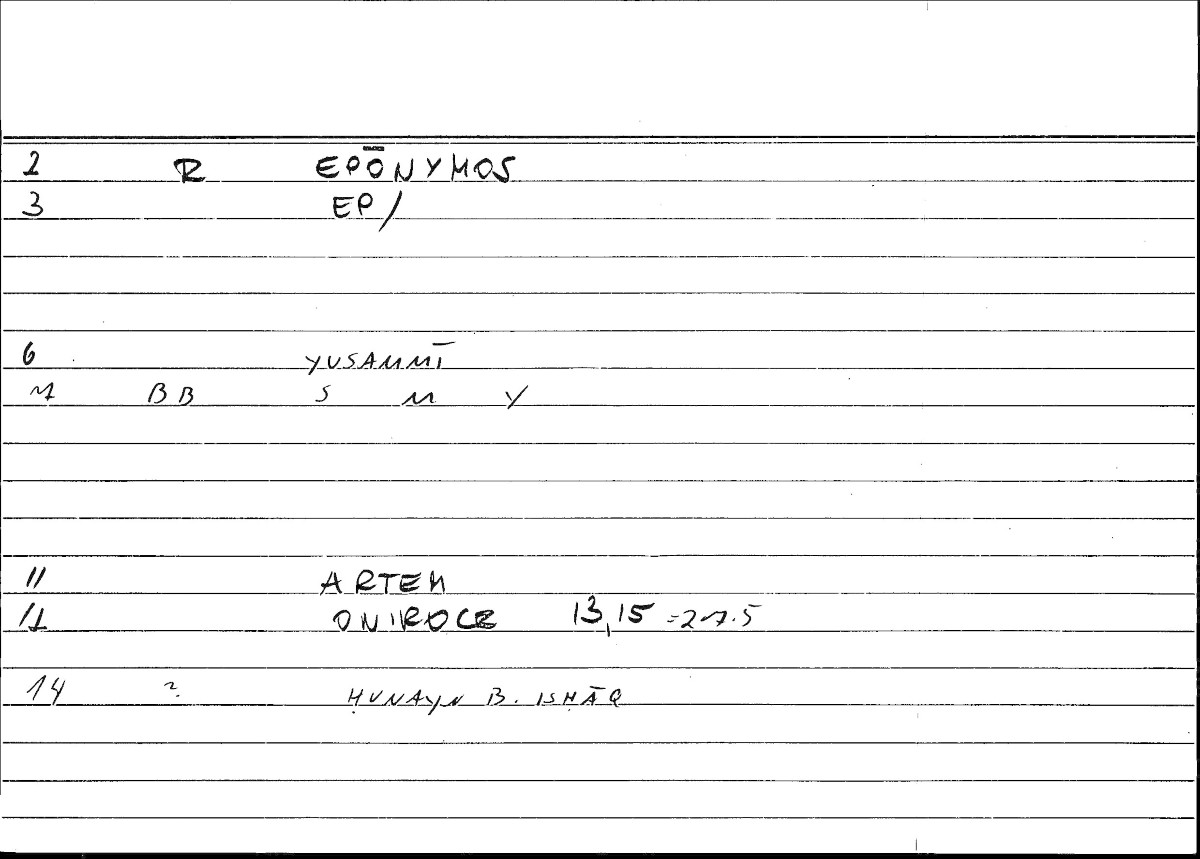 2 R EPŌNYMOS
3 EP/
6 YUSAMMĪ
7 BB S M Y
11 ARTEM
12 ONIROCR 13,15 =27.5
14 2 ḤUNAYN B. ISḤĀQ